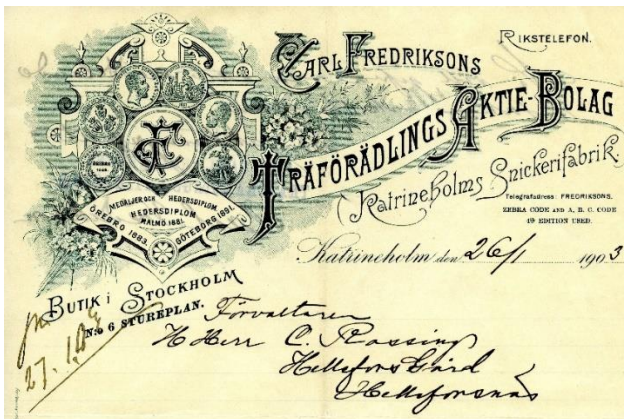 RIKSTELEFON.
CARL FREDRIKSONS
TRÄFÖRÄDLINGS AKTIE-BOLAG
Katrineholms Snickerifabrik.
Telegrafadress: FREDRIKSONS.
ZEBRA CODE AND A. B. C. CODE
4TH EDITION USED.
CF
MEDALJER OCH HEDERSDIPLOM
HEDERSDIPLOM
ÖREBRO 1883. MALMÖ 1881. GÖTEBORG 1891.
Katrineholm den 26/1 1903
BUTIK i STOCKHOLM
N:o 6 STUREPLAN.
Förvaltaren
H Herr C. Rossing
Hellefors Gård
Helleforsnäs